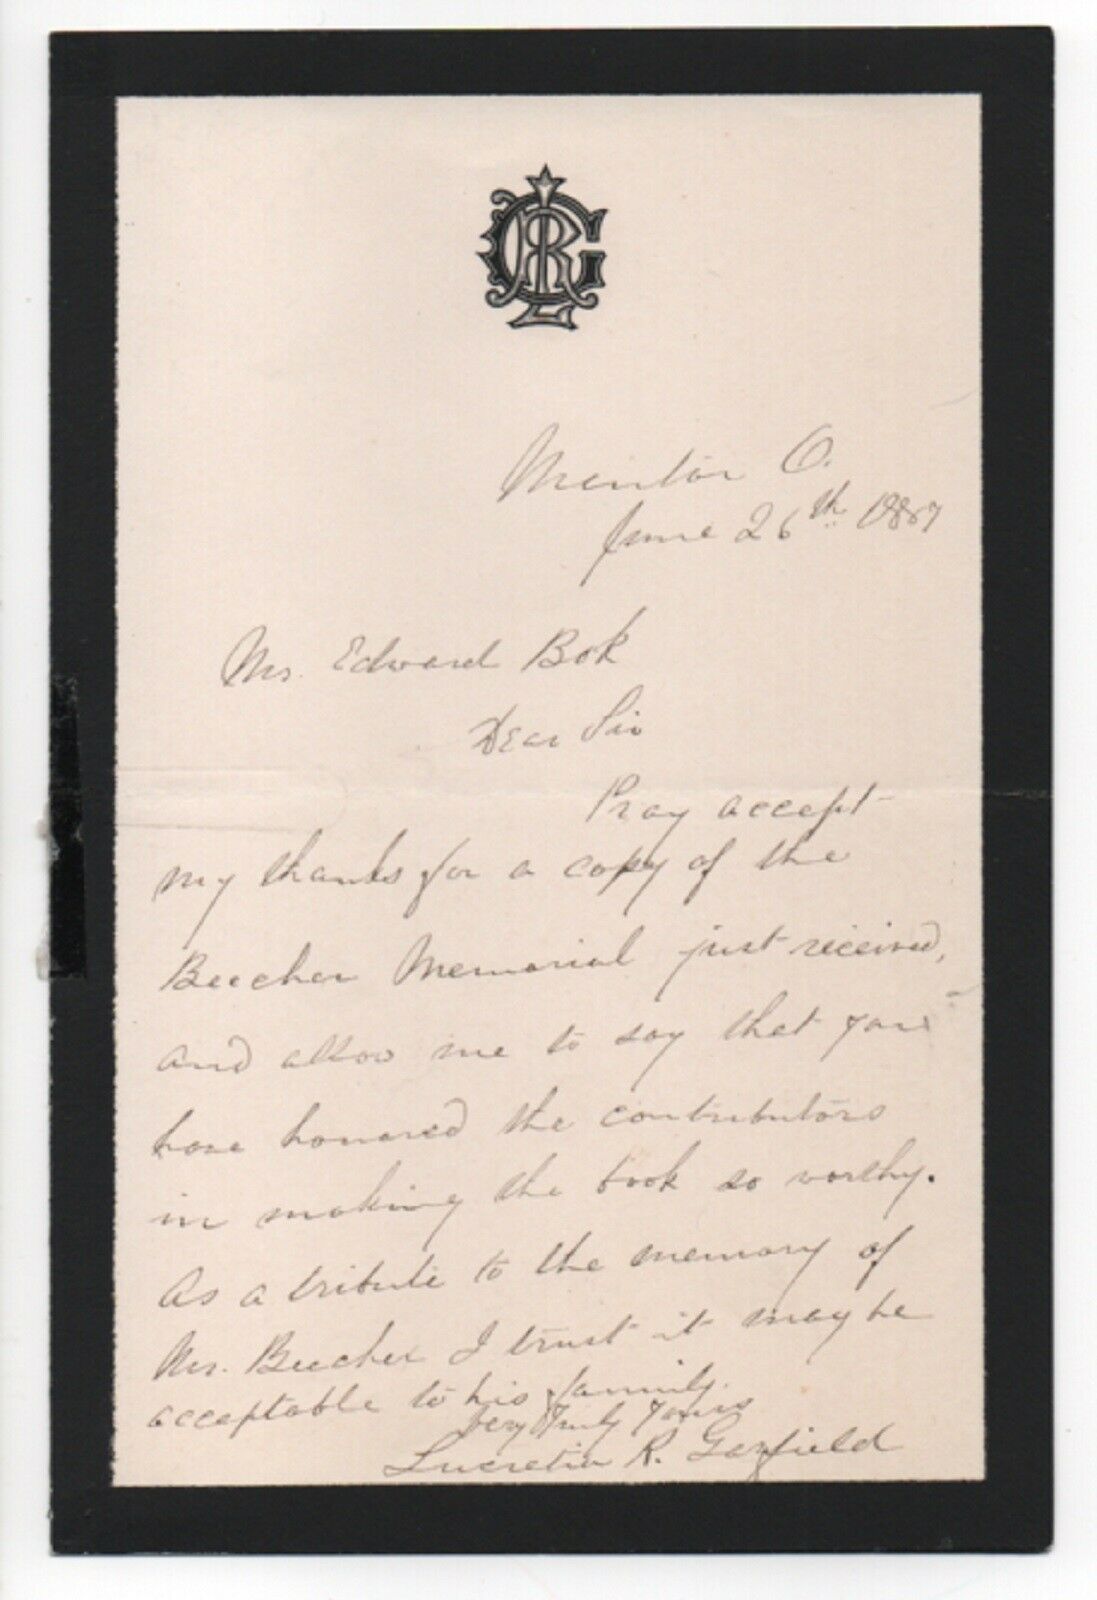 LRG
Mentor O.
June 26th 1887
Mr. Edward Bok
Dear Sir
Pray accept
my thanks for a copy of the
Beecher Memorial just received,
and allow me to say that you
have honored the contributors
in making the book so worthy.
As a tribute to the memory of
Mr. Beecher I trust it may be
acceptable to his family.
Very Truly Yours
Lucretia R. Garfield